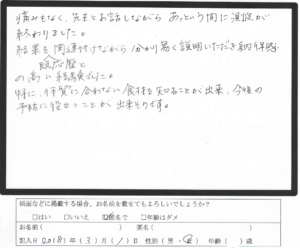 痛みもなく、先生とお話しながらあっという間に測定が
終わりました。
結果も関連付けながら分かり易く説明いただき納得感
既応歴と
の高い結果でした。
特に、体質に合わない食材を知ることが出来、今後の
予防に役立つことが出来そうです。
紙面などに掲載する場合、お名前を載せてもよろしいでしょうか?
□はい □いいえ □匿名で □年齢はダメ
お名前( ) 署名( )
記入日(2018)年(3)月(1)日 性別(男・女) 年齢( )歳